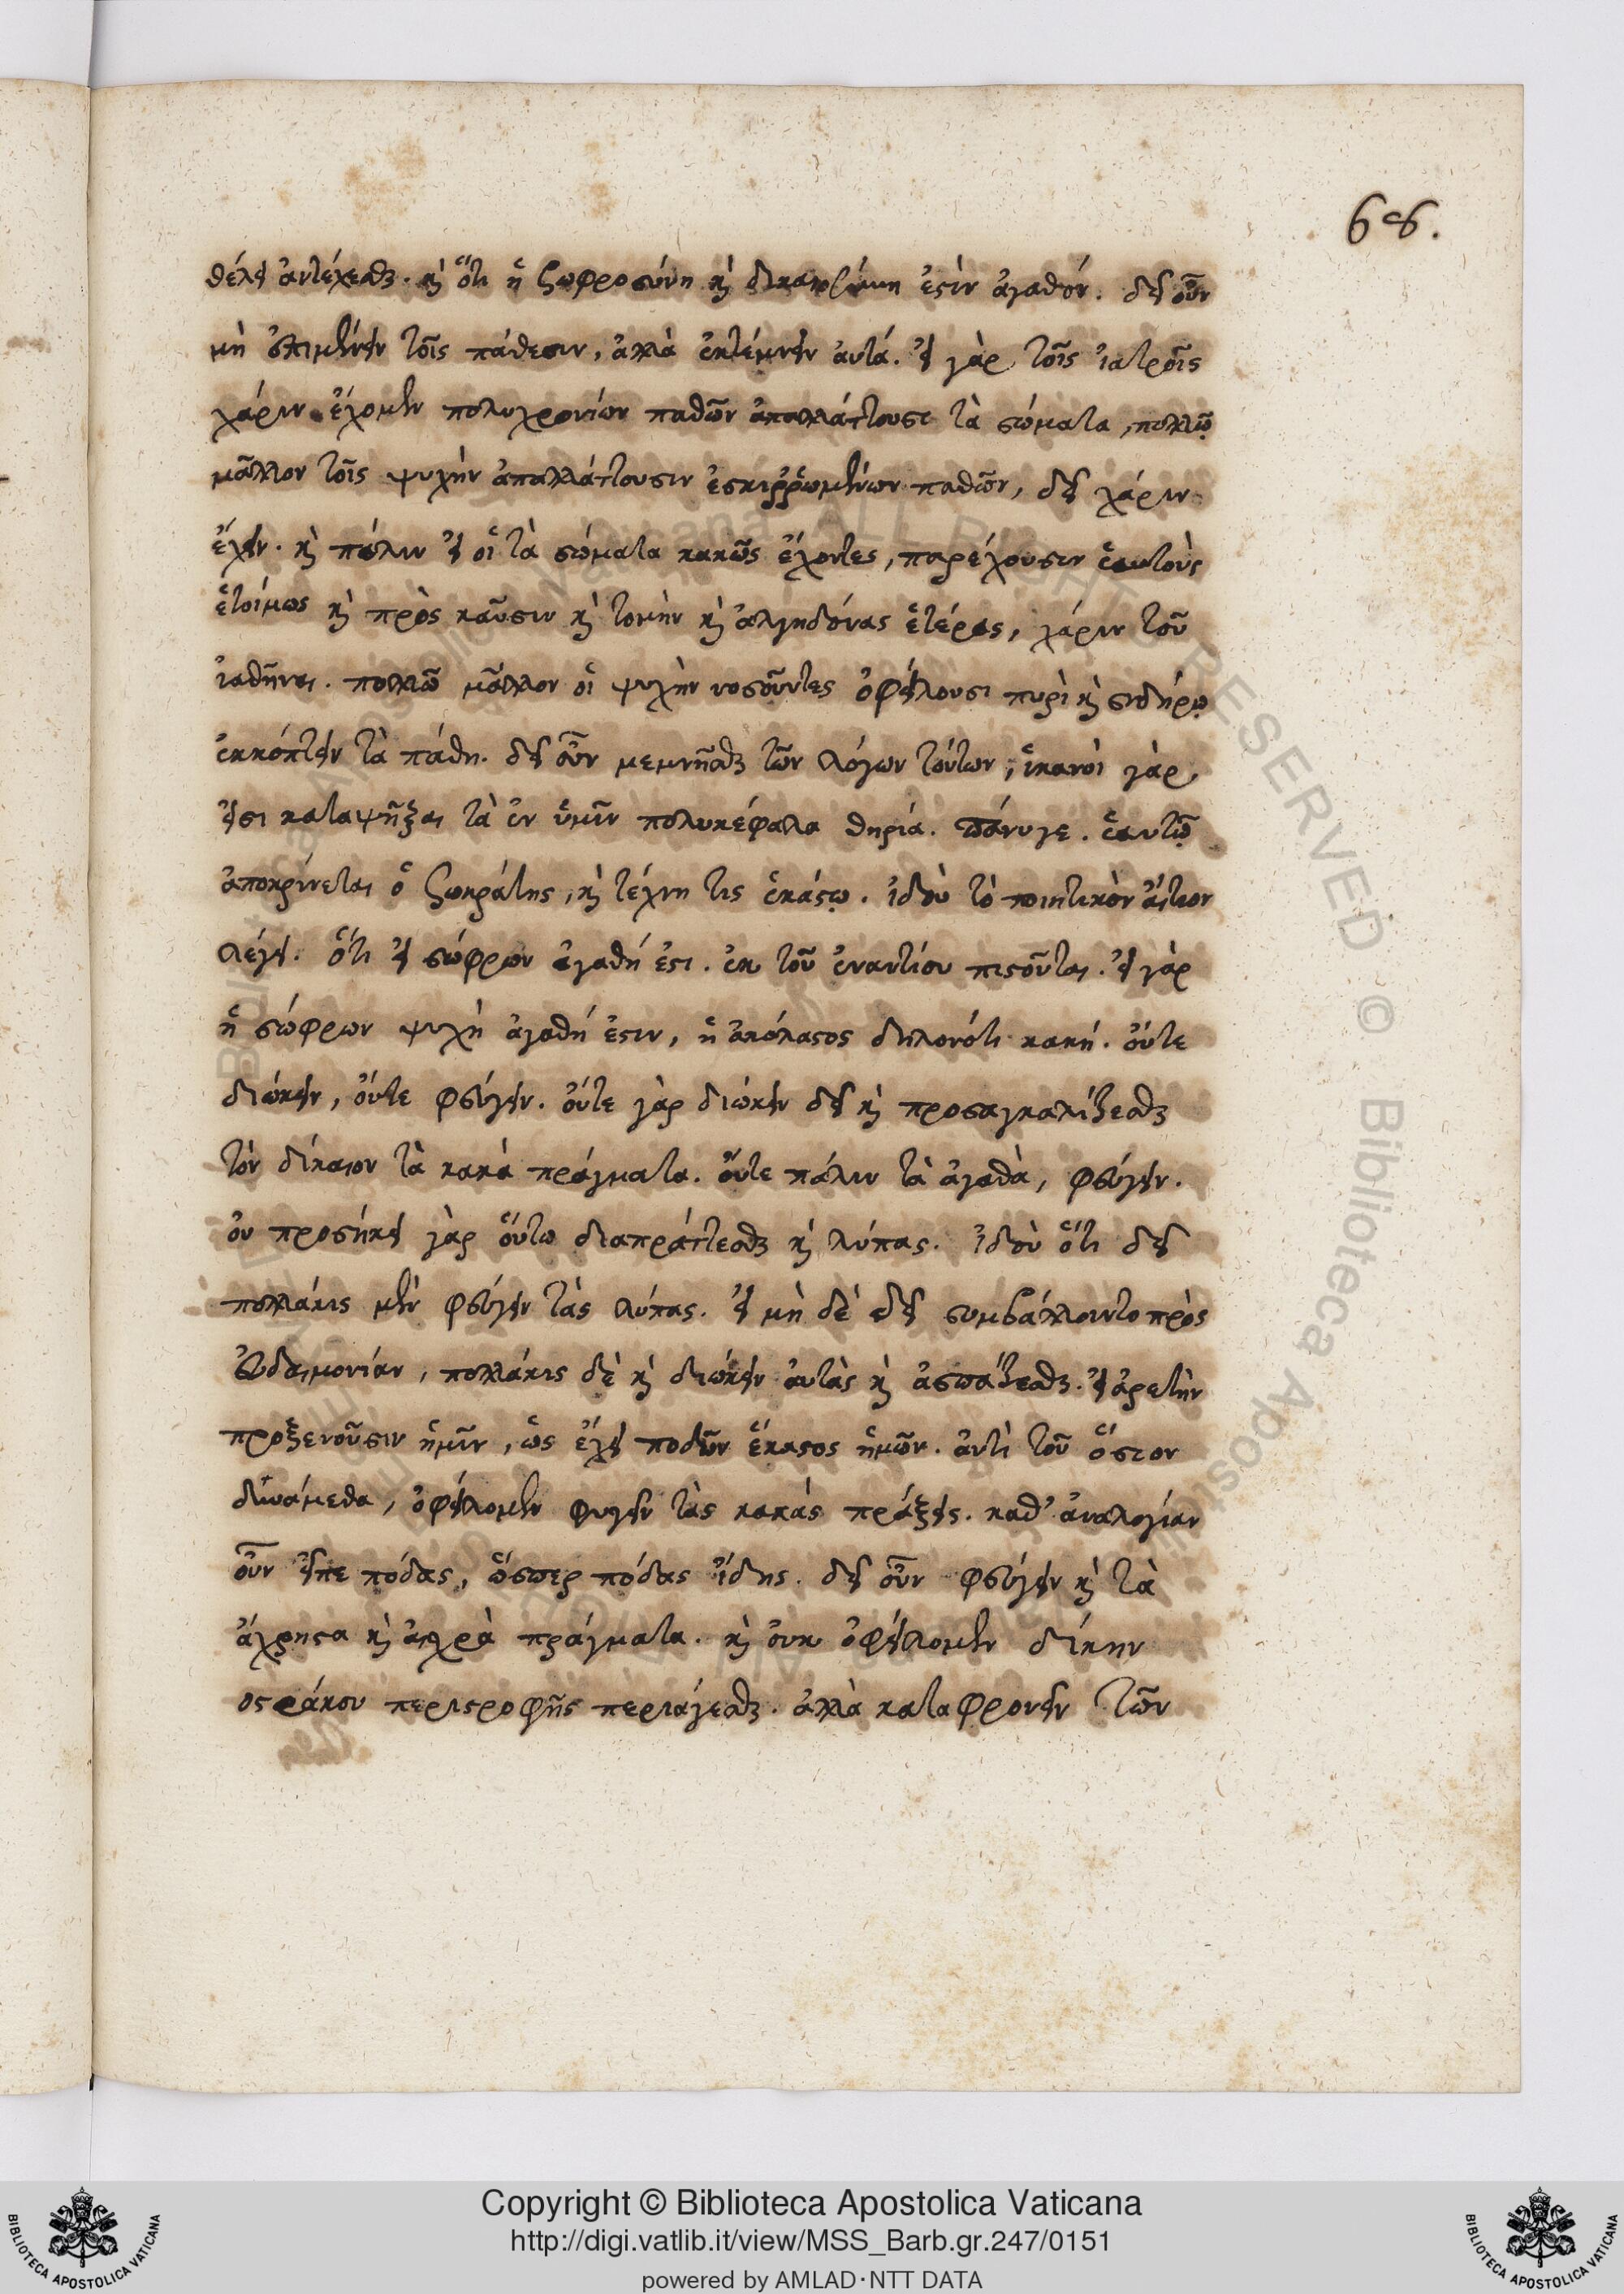 68.
θέλει ἀντέχεσθαι. καὶ ὅτι ἡ σωφροσύνη καὶ δικαιοσύνη ἐστὶν ἀγαθόν. δεῖ οὖν
μὴ ἐπιμένειν τοῖς πάθεσιν, ἀλλὰ ἐκτέμνειν αὐτά. εἰ γὰρ τοῖς ἰατροῖς
χάριν ἔχομεν πολυχρονίων παθῶν ἀπαλλάττουσι τὰ σώματα, πολλῷ
μᾶλλον τοῖς ψυχὴν ἀπαλλάττουσιν ἐσκιῤῥωμένων παθῶν, δεῖ χάριν
ἔχειν. καὶ πάλιν εἰ οἱ τὰ σώματα κακῶς ἔχοντες, παρέχουσιν ἑαυτοὺς
ἑτοίμως καὶ πρὸς καῦσιν καὶ τομὴν καὶ ἀλγηδόνας ἑτέρας, χάριν τοῦ
ἰαθῆναι. πολλῷ μᾶλλον οἱ ψυχὴν νοσοῦντες ὀφείλουσι πυρὶ καὶ σιδήρῳ
ἐκκόπτειν τὰ πάθη. δεῖ οὖν μεμνῆσθαι τῶν λόγων τούτων, ἱκανοὶ γὰρ
εἰσι καταψῆξαι τὰ ἐν ὑμῖν πολυκέφαλα θηρία. πάνυγε. ἑαυτῷ
ἀποκρίνεται ὁ Σωκράτης, καὶ τέχνη τις ἑκάστῳ. ἰδοὺ τὸ ποιητικὸν αἴτιον
λέγει. ὅτι εἰ σώφρων ἀγαθή ἐστι. ἐκ τοῦ ἐναντίου πιστοῦται. εἰ γὰρ
ἡ σώφρων ψυχὴ ἀγαθή ἐστιν, ἡ ἀκόλαστος δηλονότι κακή. οὔτε
διώκειν, οὔτε φεύγειν. οὔτε γὰρ διώκειν δεῖ καὶ προσαγκαλίζεσθαι
τὸν δίκαιον τὰ κακὰ πράγματα. οὔτε πάλιν τὰ ἀγαθὰ, φεύγειν.
οὐ προσήκει γὰρ οὕτω διαπράττεσθαι καὶ λύπας. ἰδοὺ ὅτι δεῖ
πολλάκις μὲν φεύγειν τὰς λύπας. εἰ μὴ δὲ δεῖ συμβάλλοιντο πρὸς
εὐδαιμονίαν, πολλάκις δὲ καὶ διώκειν αὐτὰς καὶ ἀσπάζεσθαι. εἰ ἀρετὴν
προξενοῦσιν ἡμῖν, ὡς ἔχει ποδῶν ἕκαστος ἡμῶν. ἀντὶ τοῦ ὅσον
δυνάμεθα, ὀφείλομεν φυγεῖν τὰς κακάς πράξεις. καθ' ἀναλογίαν
οὖν εἶπε πόδας, ὥσπερ πόδας ἴδης. δεῖ οὖν φεύγειν καὶ τὰ
ἄχρηστα καὶ αἰσχρὰ πράγματα. καὶ οὐκ ὀφείλομεν δίκην
οστράκου περιστροφῆς περιάγεσθαι. ἀλλὰ καταφρονεῖν τῶν
Copyright © Biblioteca Apostolica Vaticana
http://digi.vatlib.it/view/MSS_Barb.gr.247/0151
powered by AMLAD·NTT DATA